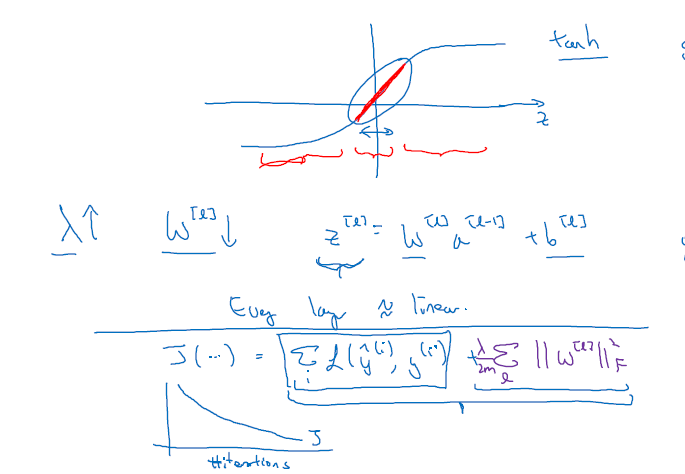 tanh
z
λ↑ W^[l]↓ z^[l] = W^[l] a^[l-1] + b^[l]
Every layer ≈ linear.
J(...) = Σ_i L(ŷ^(i), y^(i)) + λ/2m Σ_l ||W^[l]||²_F
J
#iterations